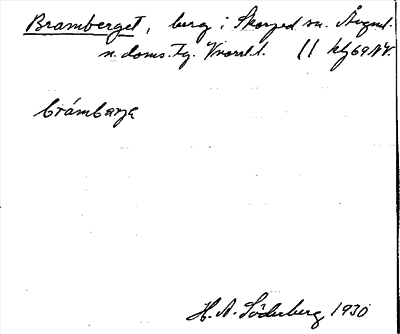 Bramberget, berg i Skorped sn. Ångml.
n. doms. tg. Vnorrl. l. 69 NV.
brámbærje
H. A. Söderberg 1930